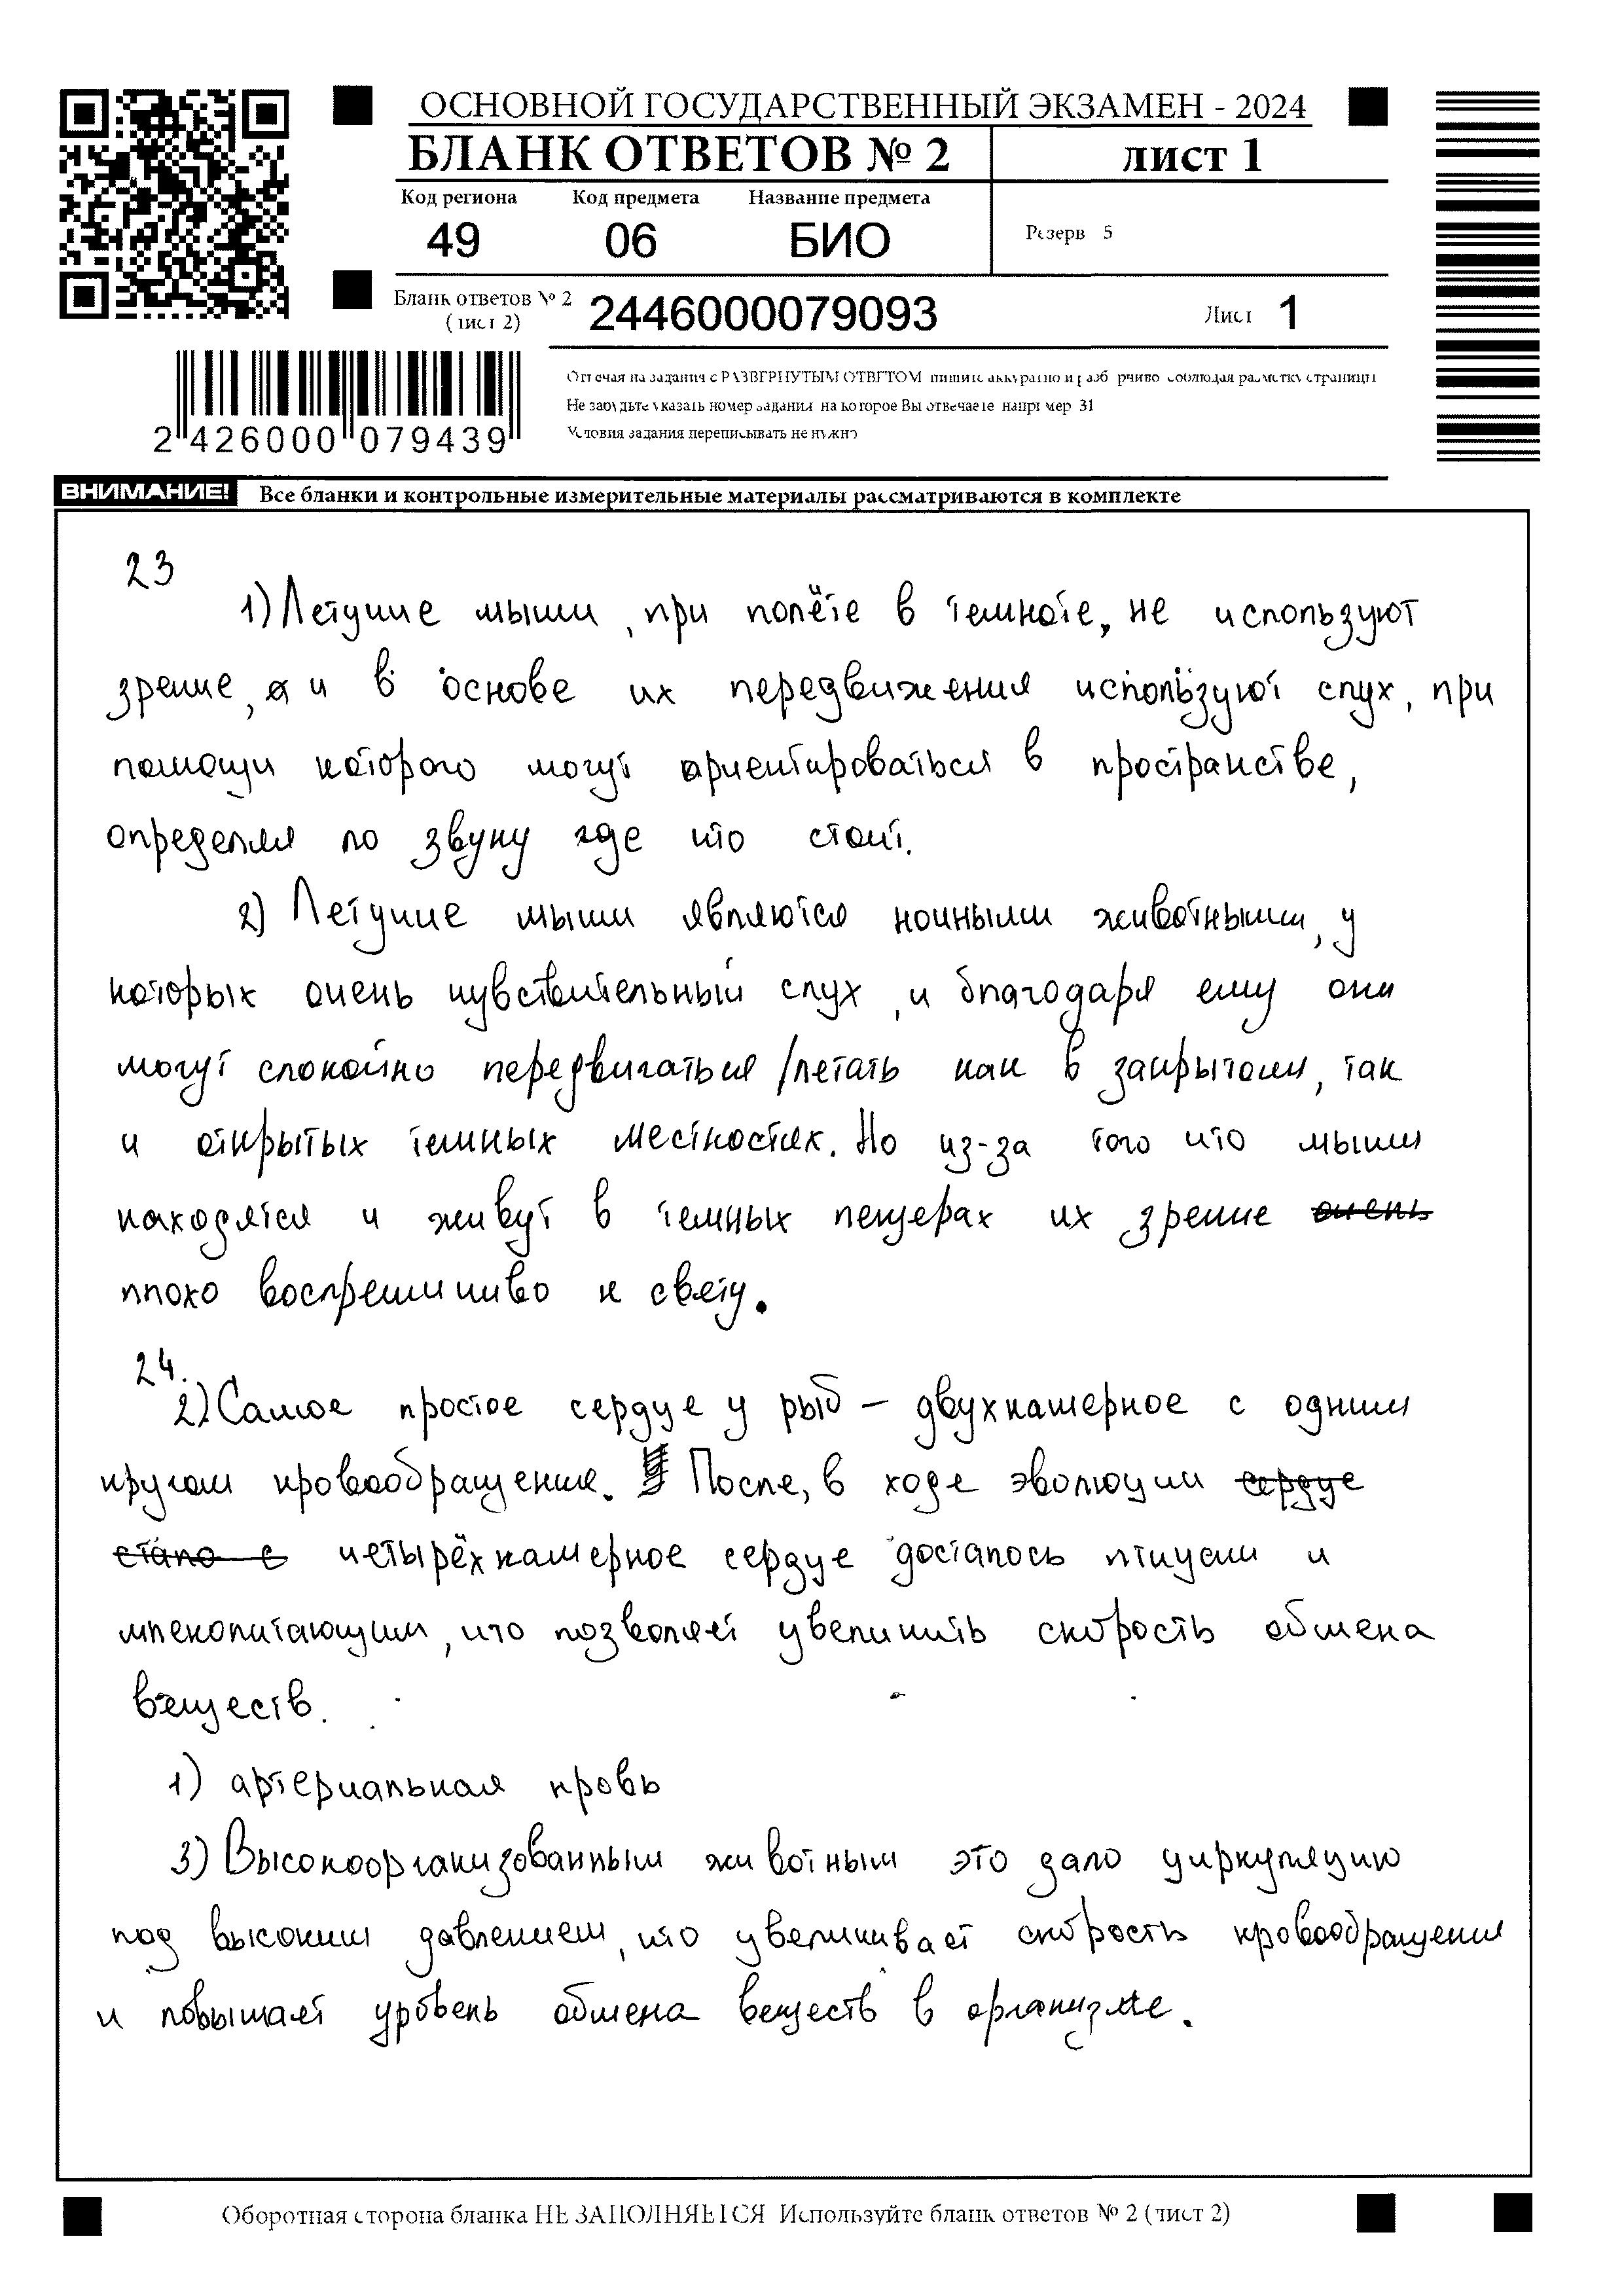 ОСНОВНОЙ ГОСУДАРСТВЕННЫЙ ЭКЗАМЕН - 2024
БЛАНК ОТВЕТОВ № 2 лист 1
Код региона Код предмета Название предмета
49 06 БИО Резерв 5
Бланк ответов № 2
(лист 2) 2446000079093 Лист 1
2 426000 079439
Отвечая на задания с РАЗВЕРНУТЫМ ОТВЕТОМ пишите аккуратно и разборчиво соблюдая разметку страницы
Не забудьте указать номер задания на которое Вы отвечаете например 31
Условия задания переписывать не нужно
ВНИМАНИЕ! Все бланки и контрольные измерительные материалы рассматриваются в комплекте
23
1) Летучие мыши, при полёте в темноте, не используют
зрение, и в основе их передвижения используют слух, при
помощи которого могут ориентироваться в пространстве,
определяя по звуку где что стоит.
2) Летучие мыши являются ночными животными, у
которых очень чувствительный слух, и благодаря ему они
могут спокойно передвигаться/летать как в закрытом, так
и открытых темных местностях. Но из-за того что мыши
находятся и живут в темных пещерах их зрение очень
плохо восприимчиво к свету.
24.
2) Самое простое сердце у рыб – двухкамерное с одним
кругом кровообращение. После, в ходе эволюции сердце
стало с четырёхкамерное сердце досталось птицам и
млекопитающим, что позволяет увеличить скорость обмена
веществ.
1) артериальная кровь
3) Высокоорганизованным животным это дало циркуляцию
под высоким давлением, что увеличивает скорость кровообращения
и повышает уровень обмена веществ в организме.
Оборотная сторона бланка НЕ ЗАПОЛНЯЕТСЯ Используйте бланк ответов № 2 (лист 2)